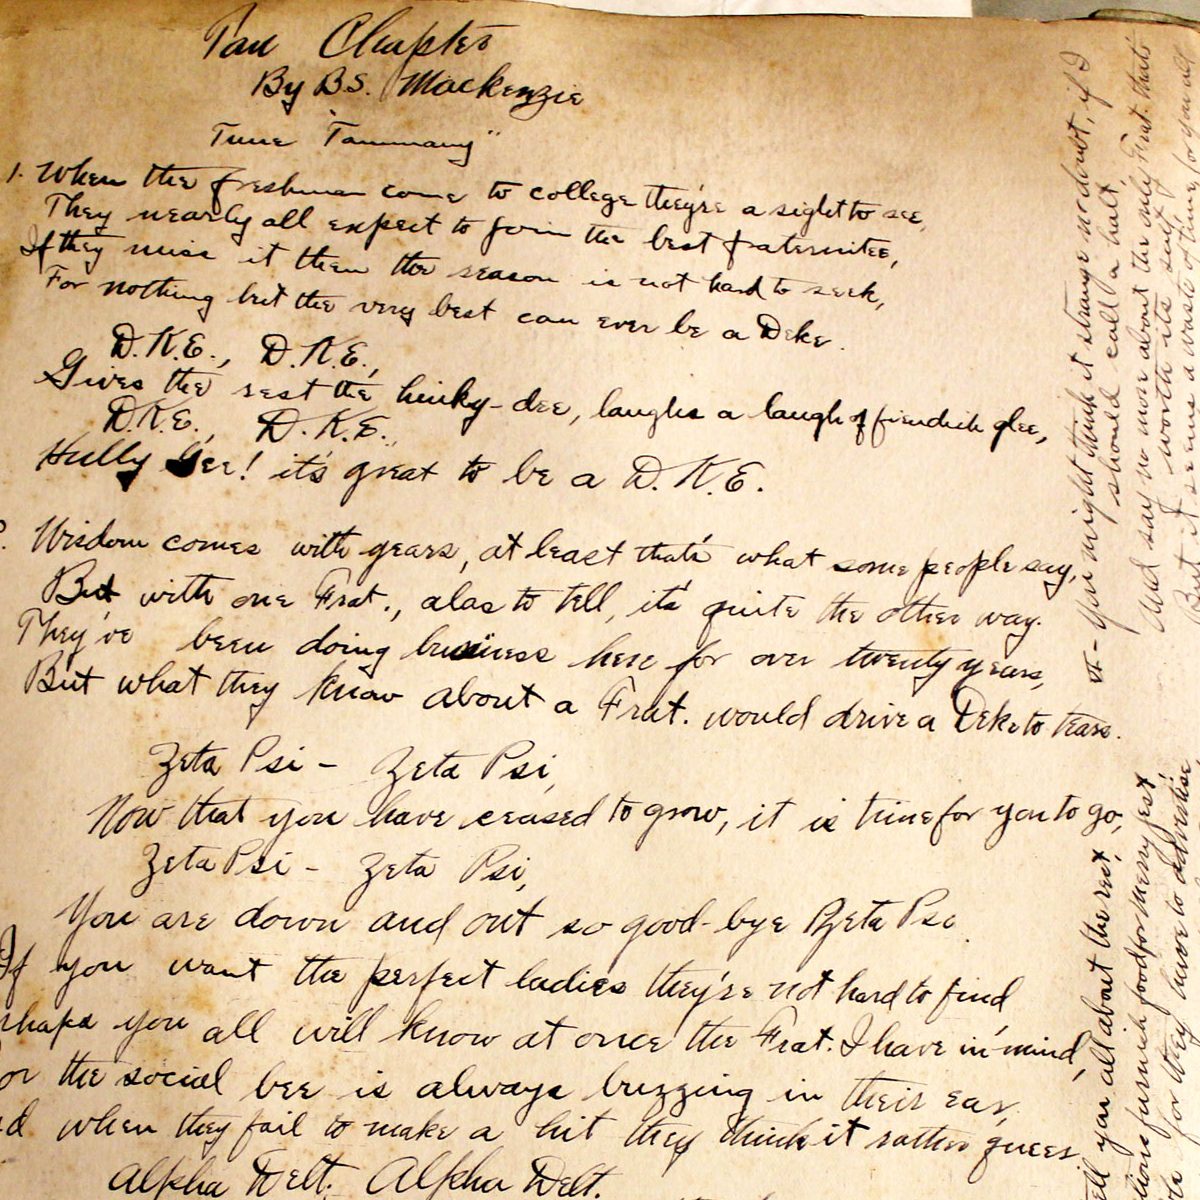 Tau Chapter
By B.S. Mackenzie
Tune "Tammany"
1. When the freshman come to college they're a sight to see,
They nearly all expect to join the best fraternitee,
If they miss it then the reason is not hard to seek,
For nothing but the very best can ever be a Deke.
D.K.E., D.K.E.,
Gives the rest the hinky-dee, laughs a laugh of fiendish glee,
D.K.E., D.K.E.,
Hully Gee! it's great to be a D.K.E.
Wisdom comes with years, at least that's what some people say,
But with one Frat., alas to tell, it's quite the other way.
They've been doing business here for over twenty years,
But what they know about a Frat. would drive a Deke to tears.
Zeta Psi - Zeta Psi,
Now that you have ceased to grow, it is time for you to go,
Zeta Psi - Zeta Psi,
You are down and out so good-bye Zeta Psi.
If you want the perfect ladies they're not hard to find
you all will know at once the Frat. I have in mind,
the social bee is always buzzing in their ear,
when they fail to make a hit they think it rather queer
Alpha Delt. Alpha Delt.
You might think it strange no doubt, if I
should call a halt,
And say no more about the only Frat. that's
worth its salt,
But it seems a waste of time, for you all
you all about the rest,
furnish food for merry jest,
for they have to advertise